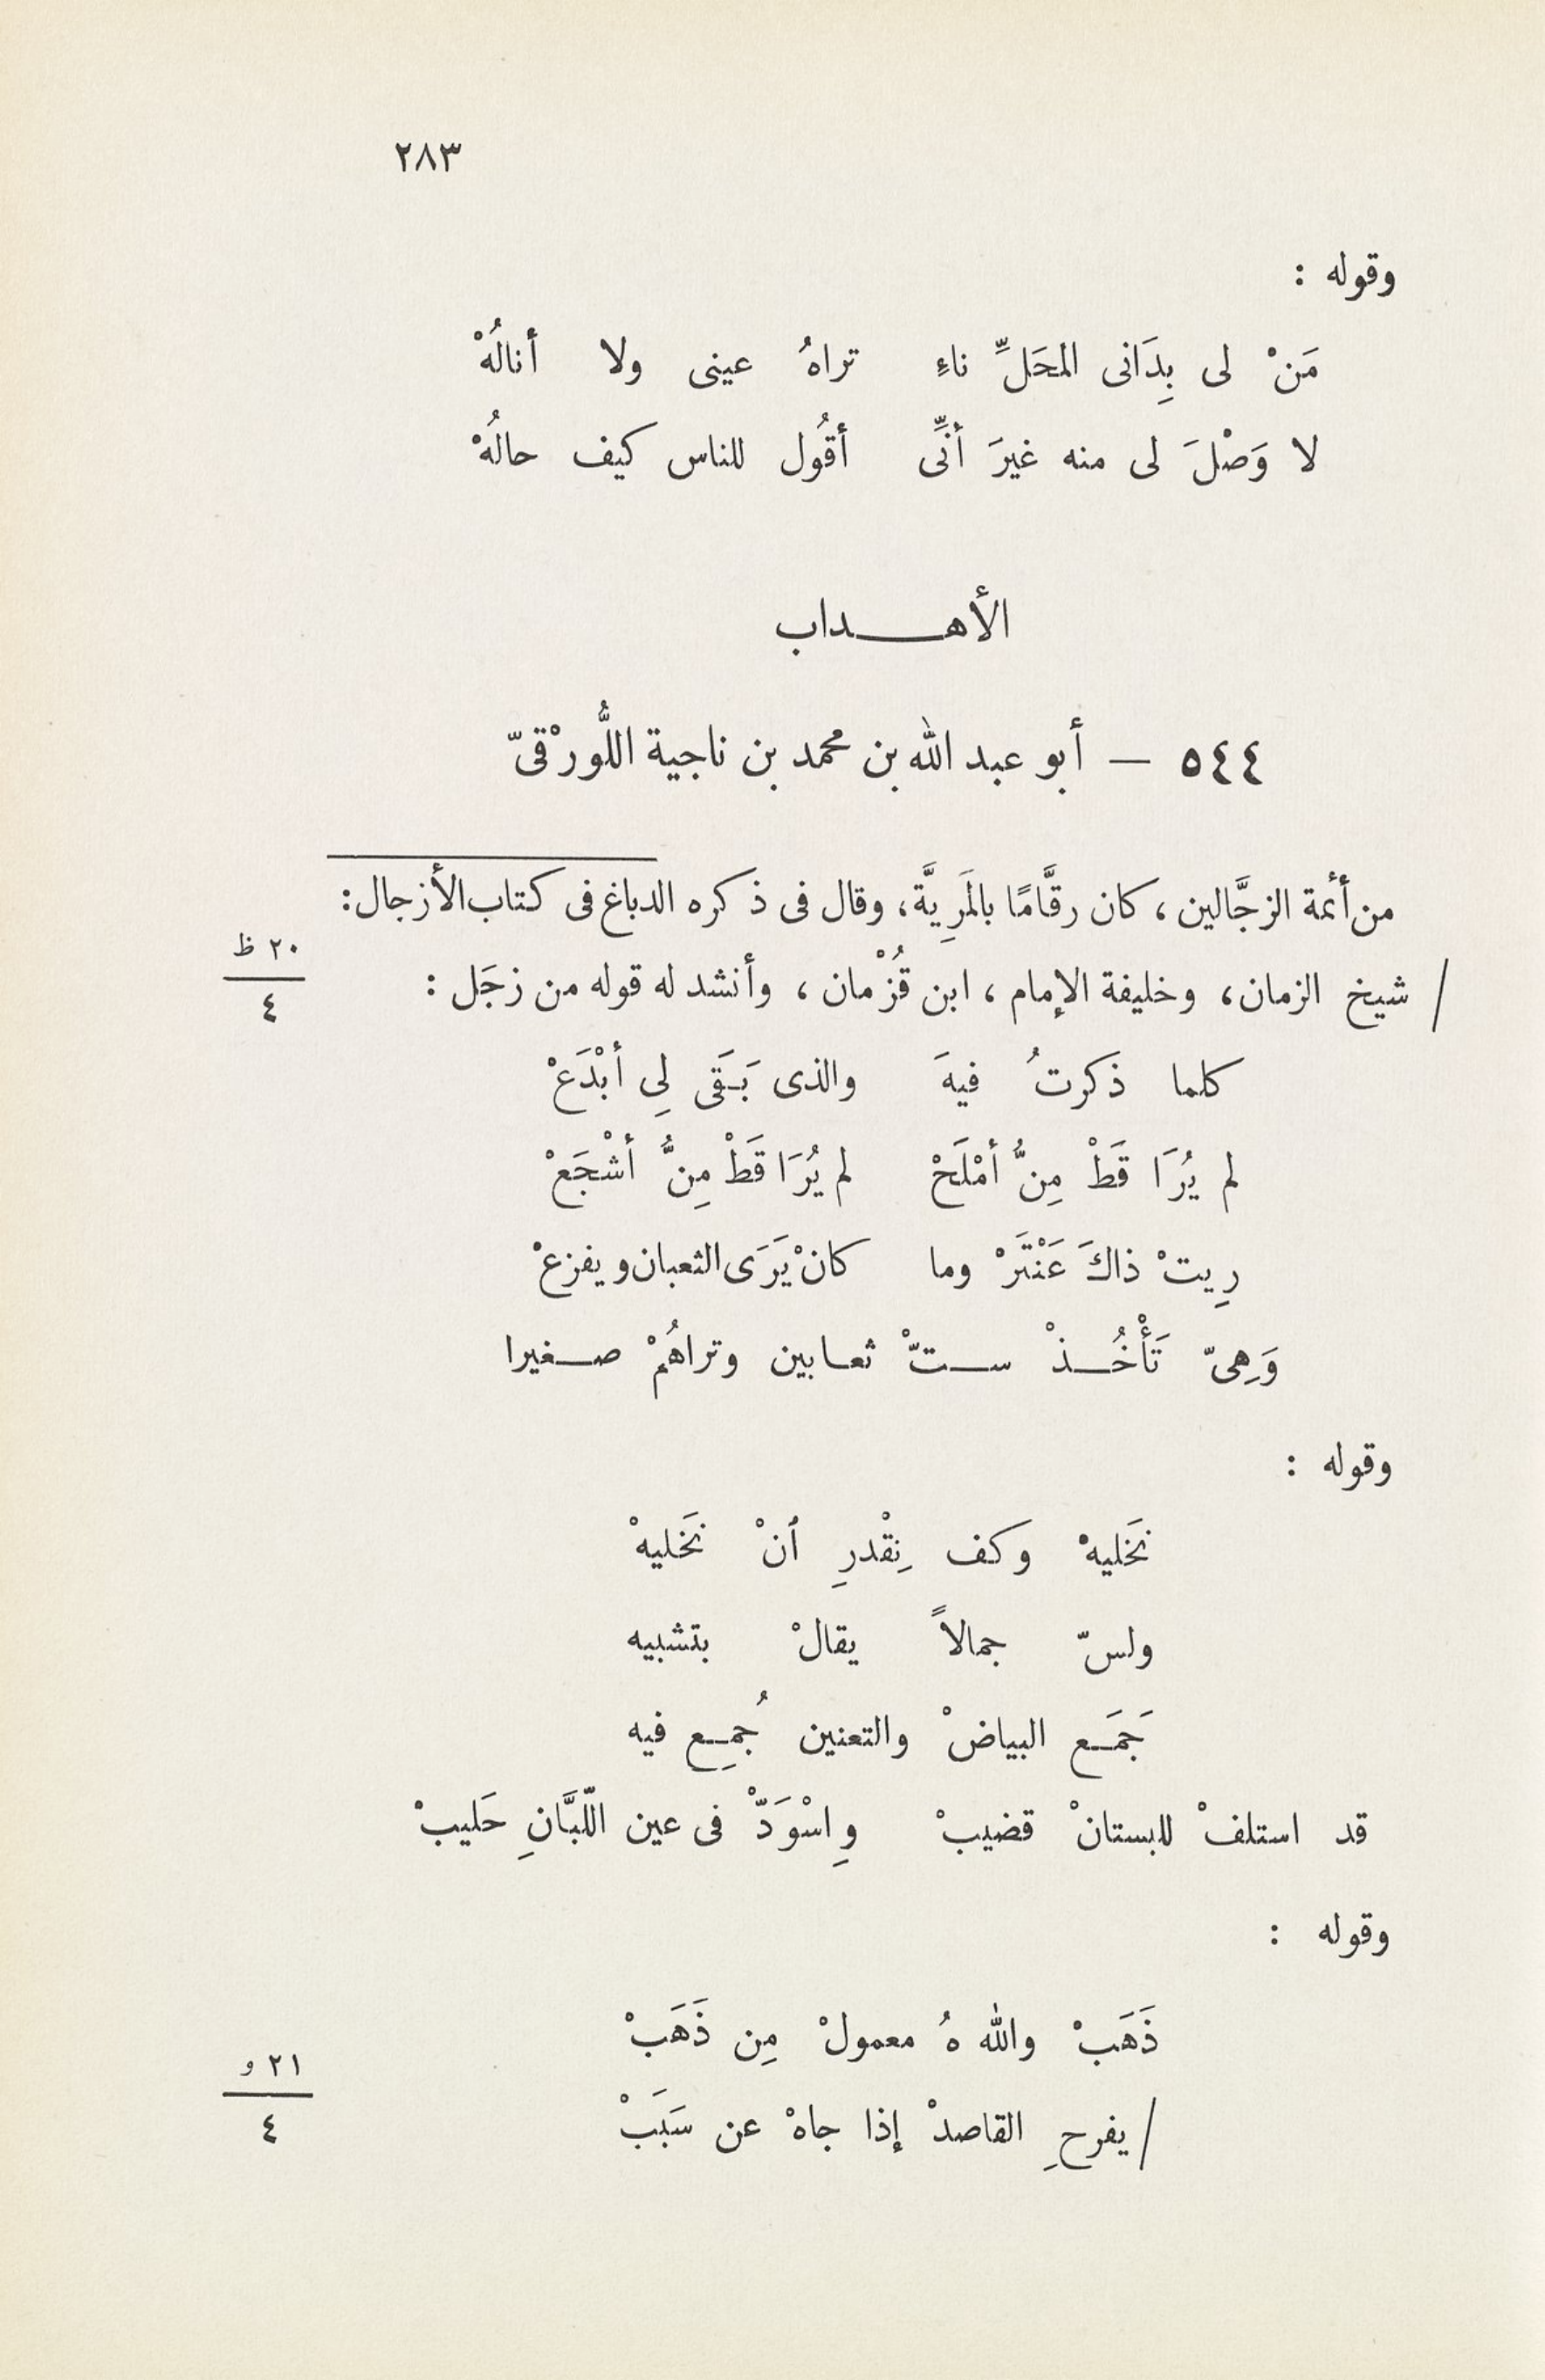 ٢٨٣
وقوله :
مَنْ لى بِدَانى المحَلِّ ناءِ تراهُ عينى ولا أنالُهْ
لا وَصْلَ لى منه غيرَ أنِّى أقُول للناس كيف حالُهْ
الأهـداب
٥٤٤ — أبو عبد الله بن محمد بن ناجية اللُّورْقىّ
من أئمة الزجَّالين ، كان رقَّامًا بالمَرِيَّة، وقال فى ذكره الدباغ فى كتاب الأزجال :
٢٠ ظ
/ شيخ الزمان، وخليفة الإمام ، ابن قُزْمان ، وأنشد له قوله من زجَل :
٤
كلما ذكرتُ فيهَ والذى بَـقَى لِى أبْدَعْ
لم يُرَا قَطْ مِنُّ أمْلَحْ لم يُرَا قَطْ مِنُّ أشْجَعْ
رِيتْ ذاكَ عَنْتَرْ وما كانْ يَرَى الثعبان ويفزعْ
وَهِىّ تَأْخُـذْ سـتّْ ثعـابين وتراهُمْ صـغيرا
وقوله :
نَخليهْ وكف نِقْدرِ أنْ نَخليهْ
ولسّ جمالاً يقالْ بتشبيه
جَمَـع البياضْ والتعنين جُمِـع فيه
قد استلفْ للبستانْ قضيبْ وِاسْوَدّْ فى عين اللّبَّانِ حَليبْ
وقوله :
ذَهَبْ والله هُ معمولْ مِن ذَهَبْ
٢١ و
٤
/ يفرحِ القاصدْ إذا جاهْ عن سَبَبْ